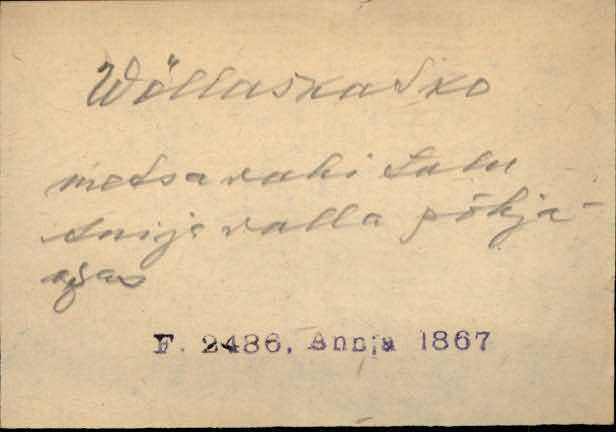 Wöllaskatko
metsavahi talu
Anija valla põhja-
osas
F. 2486, Annja 1867